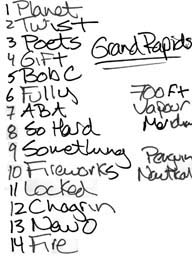 1 Planet
2 Twist
3 Poets
4 Gift
5 Bob C
6 Fully
7 ABA
8 So Hard
9 Something
10 Fireworks
11 Locked
12 Chagrin
13 New O
14 Fire
Grand Rapids
700 Ft
Vapour
Penguin
Nautical